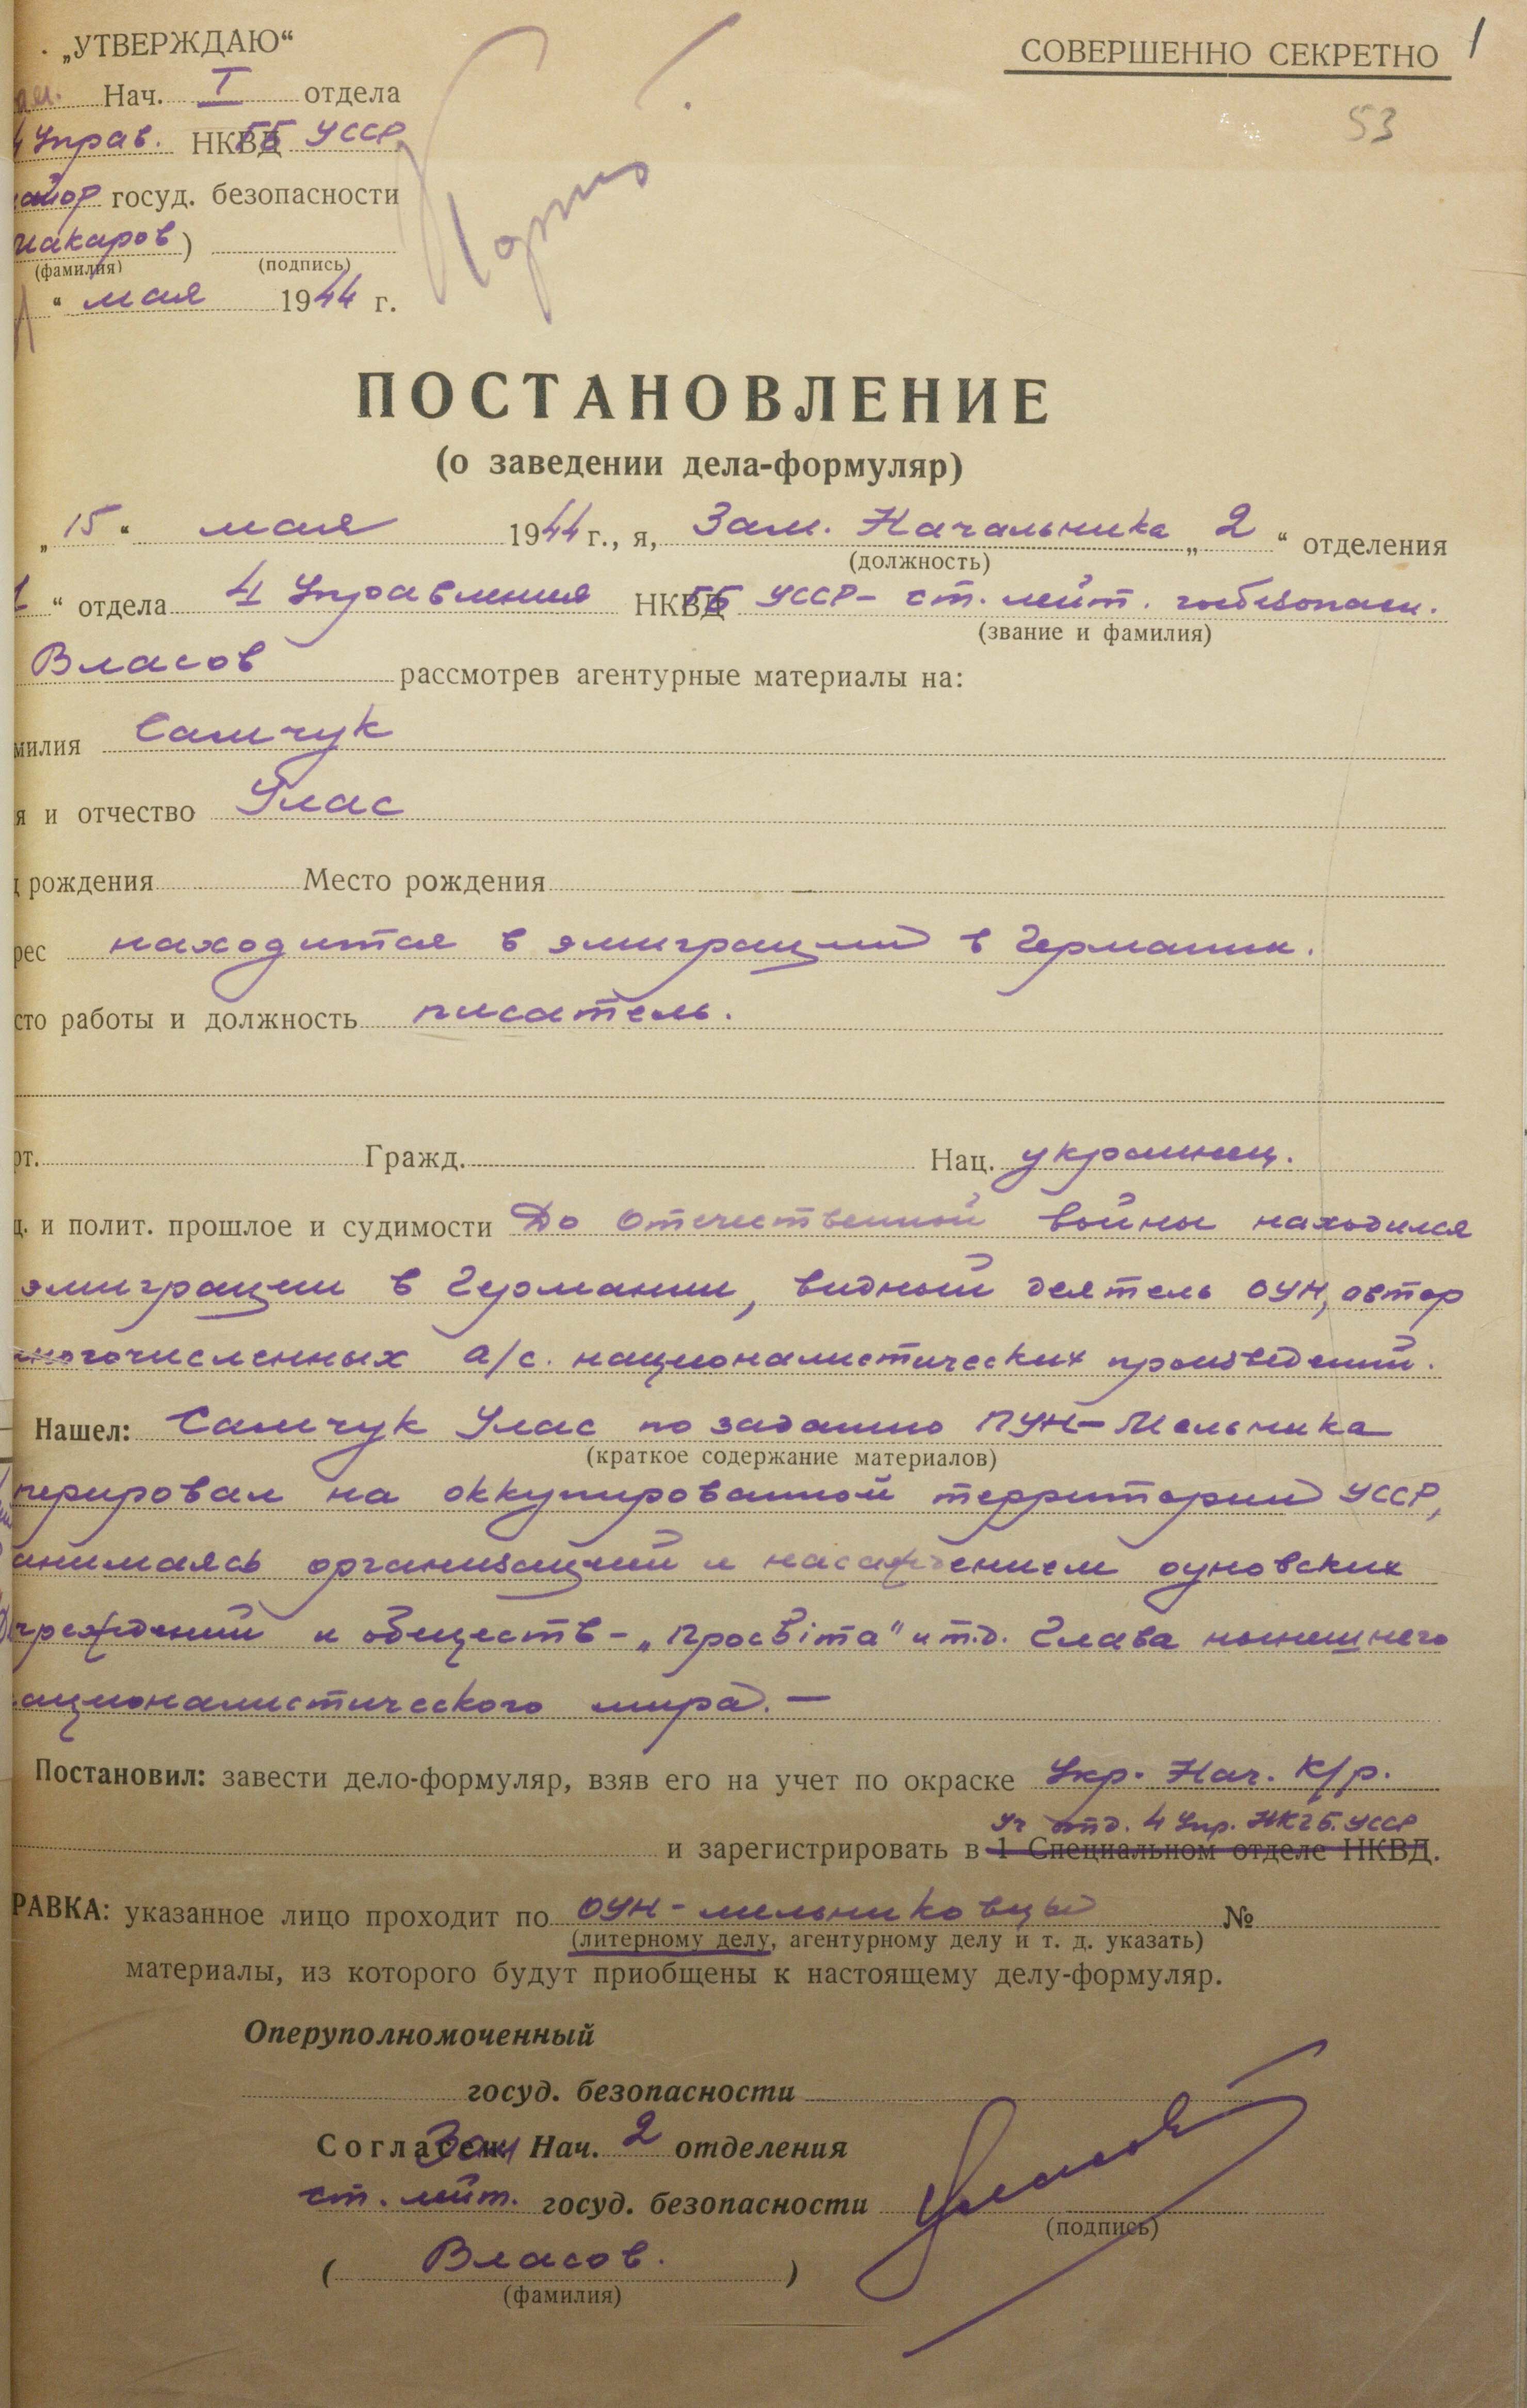 „УТВЕРЖДАЮ“
СОВЕРШЕННО СЕКРЕТНО 1
Нач. I отдела
53
4 Управ. НКГБ УССР
майор госуд. безопасности
Макаров)
(фамилия) (подпись)
“ мая 1944 г.
ПОСТАНОВЛЕНИЕ
(о заведении дела-формуляр)
„15“ мая 1944 г., я, Зам. Начальника „2“ отделения
(должность)
1 “ отдела 4 Управления НКГБ УССР – ст. лейт. госбезопасн.
(звание и фамилия)
Власов рассмотрев агентурные материалы на:
милия Самчук
я и отчество Улас
рождения Место рождения —
рес находится в эмиграции в Германии.
сто работы и должность писатель.
рт. Гражд. Нац. украинец.
ц. и полит. прошлое и судимости До Отечественной войны находился
эмиграции в Германии, видный деятель ОУН, автор
многочисленных а/с. националистических произведений.
Нашел: Самчук Улас по заданию ПУН – Мельника
(краткое содержание материалов)
перировал на оккупированной территории УССР,
анимаясь организацией и насаждением оуновских
чреждений и обществ – „Просвіта“ и т.д. Глава нынешнего
ационалистического мира. —
Постановил: завести дело-формуляр, взяв его на учет по окраске Укр. Нац. к/р.
Уч отд. 4 Упр. НКГБ. УССР
и зарегистрировать в 1 Специальном отделе НКВД.
РАВКА: указанное лицо проходит по ОУН – мельниковцы №
(литерному делу, агентурному делу и т. д. указать)
материалы, из которого будут приобщены к настоящему делу-формуляр.
Оперуполномоченный
госуд. безопасности
Согласен: Зам Нач. 2 отделения
ст. лейт. госуд. безопасности
(подпись)
( Власов. )
(фамилия)